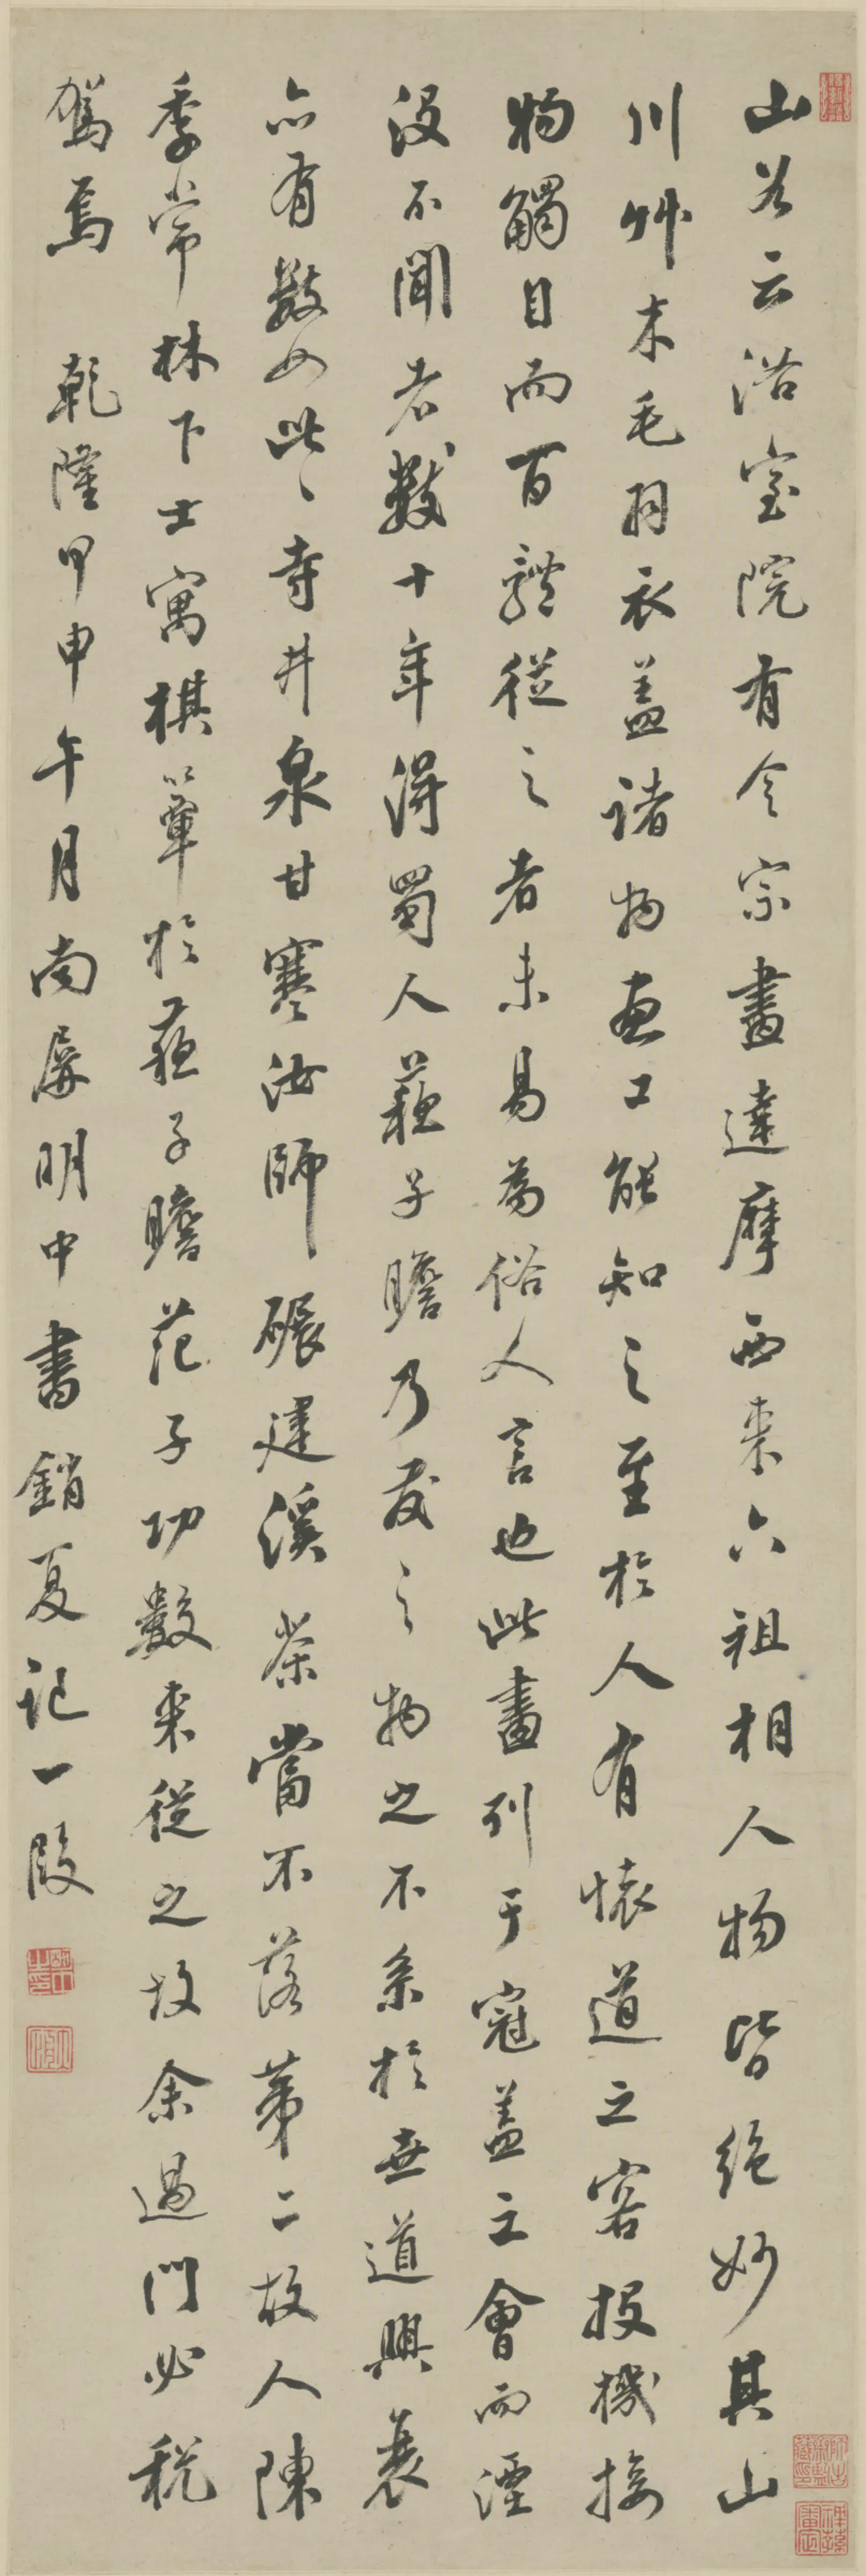 山谷云浴室院有令宗畫達摩西來六祖相人物皆絕妙其山
川艸木毛羽衣盖諸物畫工能知之至於人有懷道之容投機接
物觸目而百體從之者未易為俗人言也此畫列于冠盖之會而湮
沒不聞者數十年得蜀人蘇子瞻乃發之物之不系於世道興衰
亦有數如此〻寺井泉甘寒汝師碾建溪茶當不落第二故人陳
季常林下士寓棋簞於蘇子瞻范子功數来從之故余過門必稅
駕焉 乾隆甲申午月南屏明中書銷夏記一段